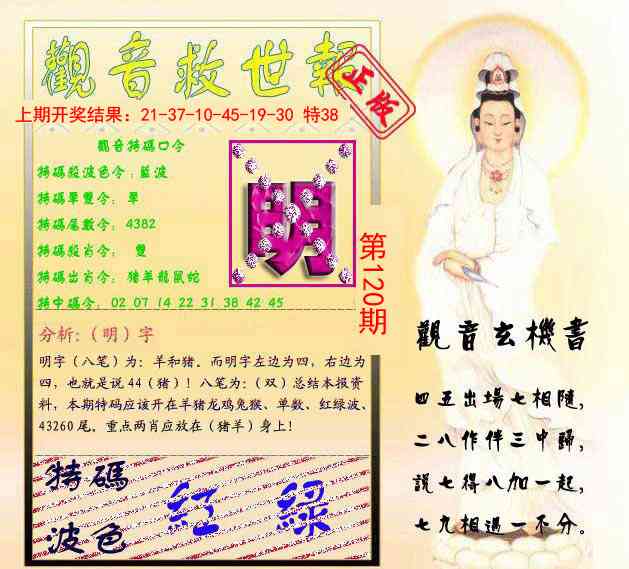 觀音救世報
正版
上期开奖结果：21-37-10-45-19-30 特38
觀音特碼口令
特碼殺波色令：藍波
特碼單雙令： 單
特碼尾數令： 4382
特碼殺肖令： 雙
特碼出肖令： 猪羊龍鼠蛇
特中碼令：02 07 14 22 31 38 42 45
明
第120期
分析:（明）字
明字（八笔）为：羊和猪。而明字左边为四，右边为
四，也就是说 44（猪）！八笔为：（双）总结本报资
料，本期特码应该开在羊猪龙鸡兔猴、单数、红绿波、
43260 尾。重点两肖应放在（猪羊）身上！
特碼
波色
紅 綠
觀音玄機書
四五出場七相隨，
二八作伴三中歸，
説七得八加一起，
七九相遇一不分。